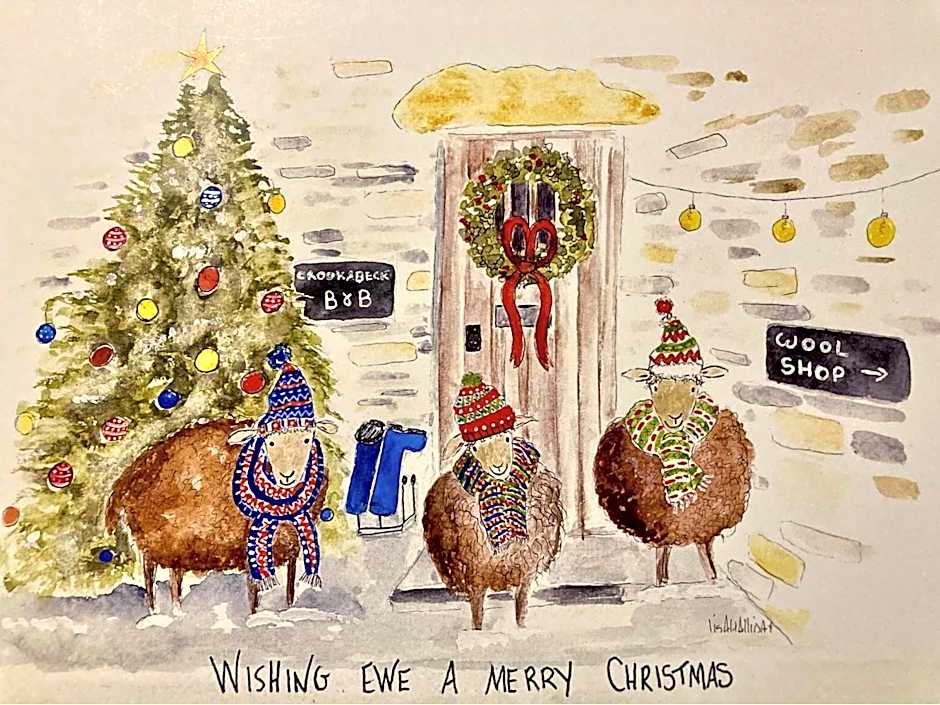 CROOKABECK
B&B
WOOL
SHOP →
lisaHalliday
WISHING EWE A MERRY CHRISTMAS